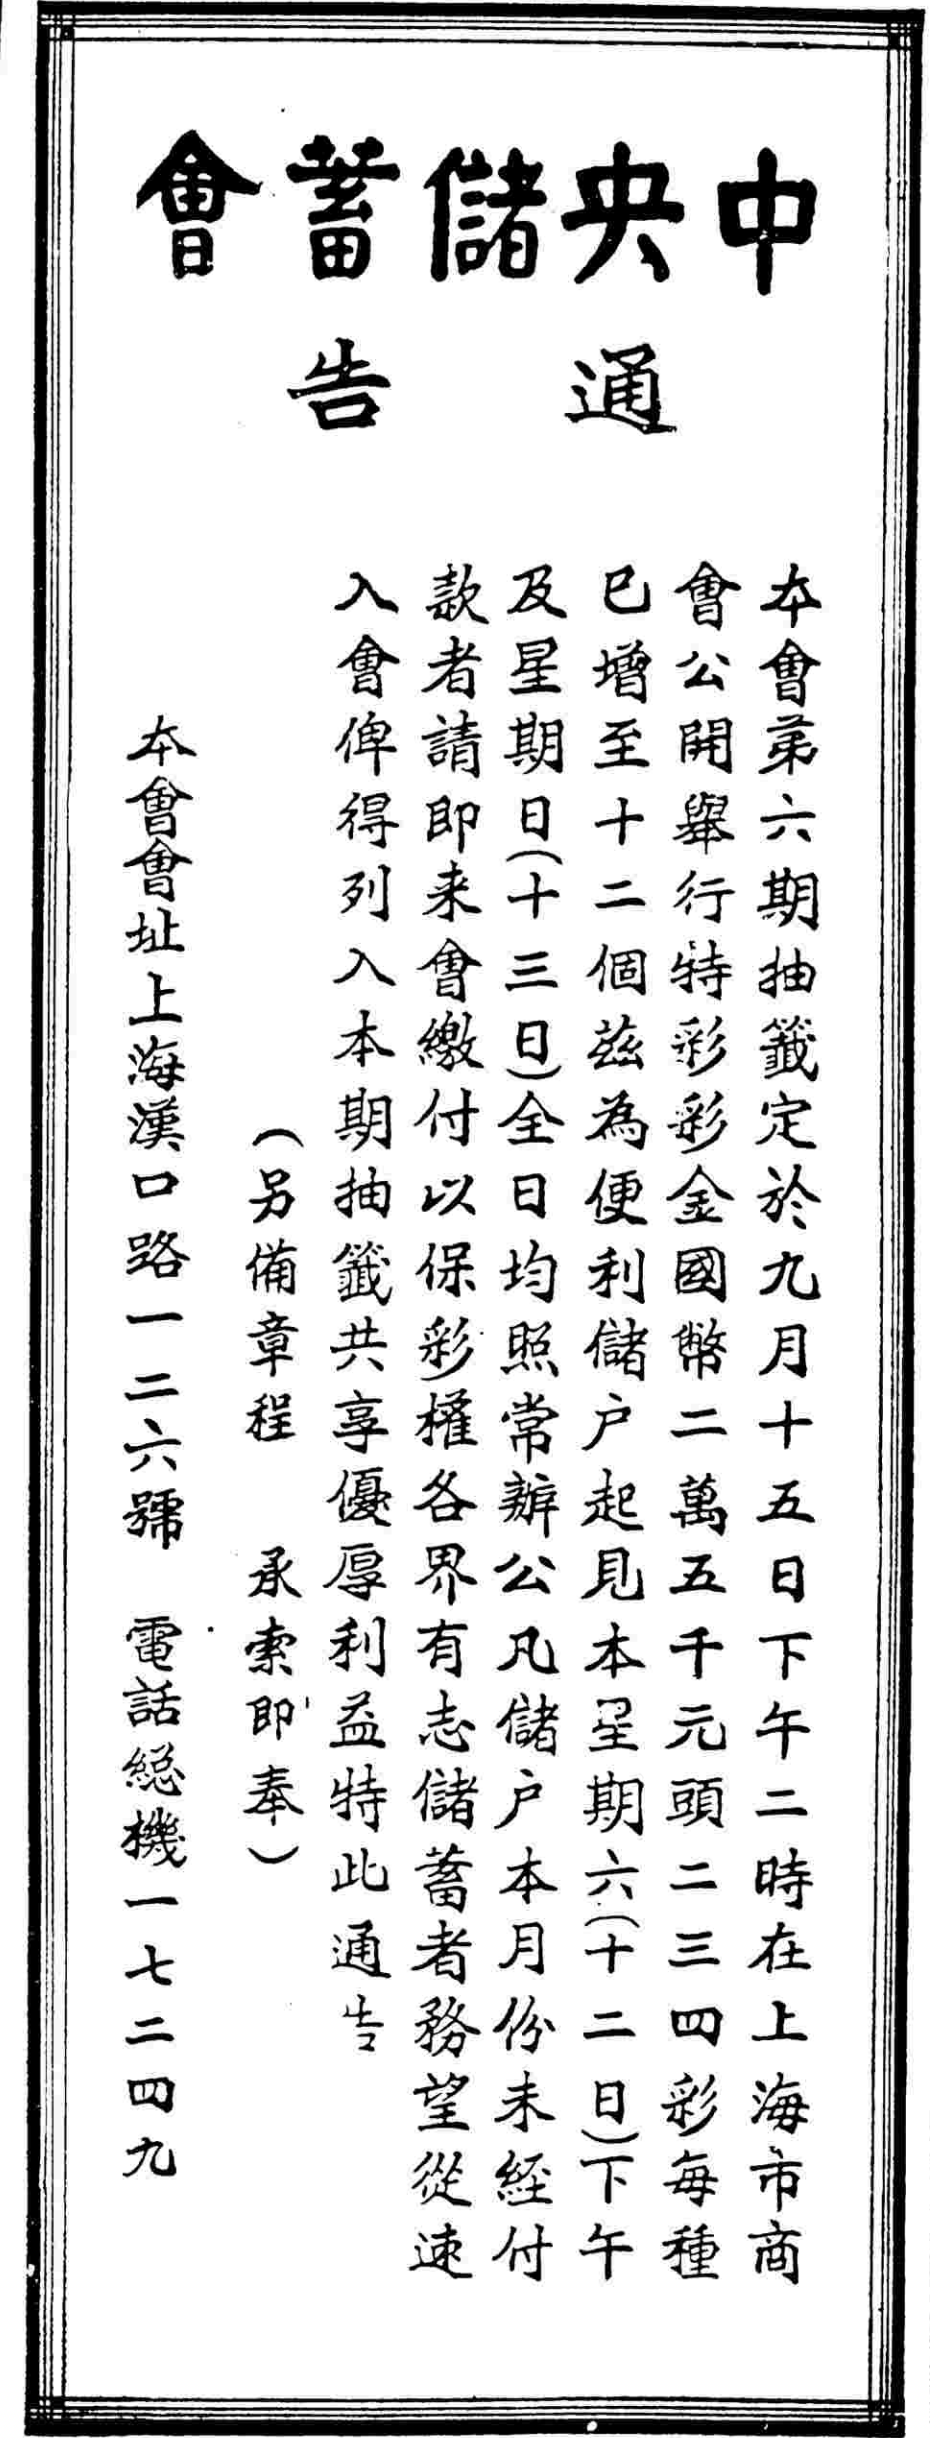 中央儲蓄會
通告
本會第六期抽籤定於九月十五日下午二時在上海市商
會公開舉行特彩彩金國幣二萬五千元頭二三四彩每種
已增至十二個茲為便利儲户起見本星期六(十二日)下午
及星期日(十三日)全日均照常辦公凡儲户本月份未經付
款者請即来會繳付以保彩權各界有志儲蓄者務望從速
入會俾得列入本期抽籤共享優厚利益特此通告
(另備章程 承索即奉)
本會會址上海漢口路一二六號 電話總機一七二四九